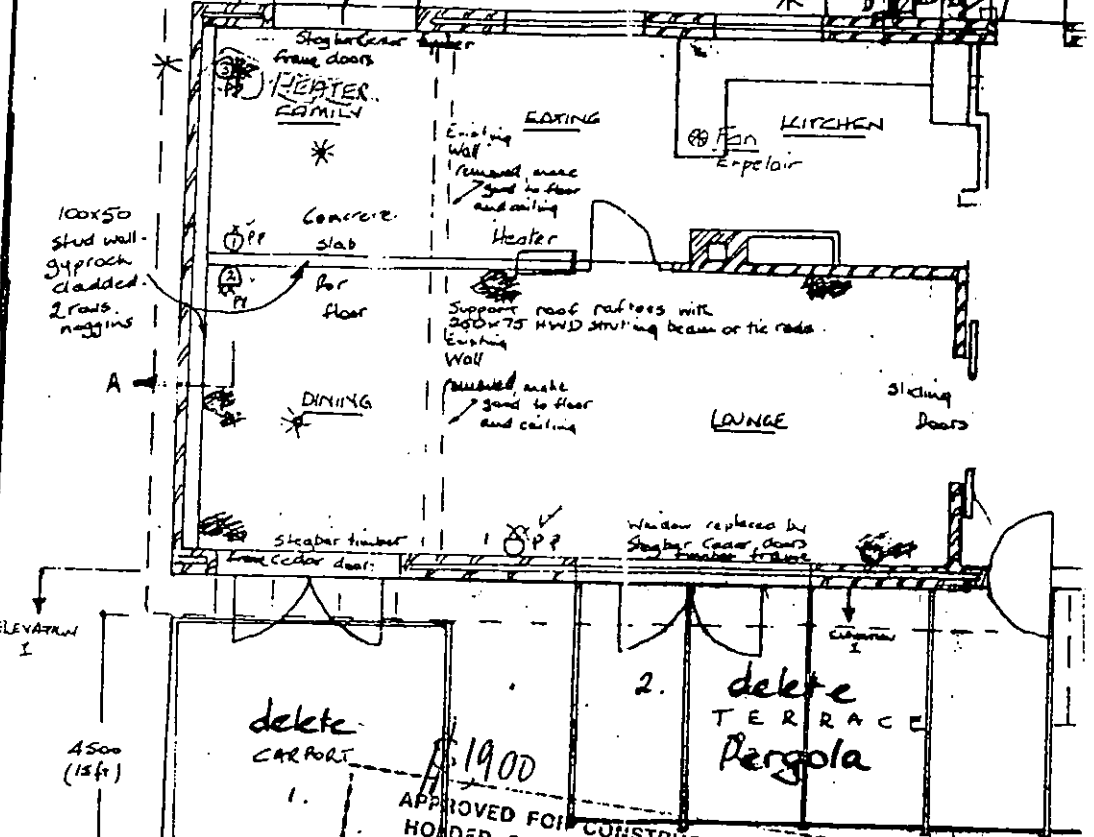 Stegbar Cedar timber
frame doors
HEATER
FAMILY
EATING
KITCHEN
Fan
Expelair
Existing
Wall
removed, make
good to floor
and ceiling
100x50
stud wall
gyprock
cladded.
2 rows.
noggins
1
PP
Concrete
slab
for
floor
Heater
2
Support roof rafters with
250x75 HWD strutting beam or tie rods
Existing
Wall
removed, make
good to floor
and ceiling
A
DINING
LOUNGE
Sliding
Doors
Stegbar timber
frame cedar door.
PP
Window replaced by
Stegbar Cedar doors
timber frame
ELEVATION
1
ELEVATION
1
delete
CARPORT
1.
2.
delete
TERRACE
Pergola
4500
(15ft)
$1900
APPROVED FOR CONSTR
HOLDER